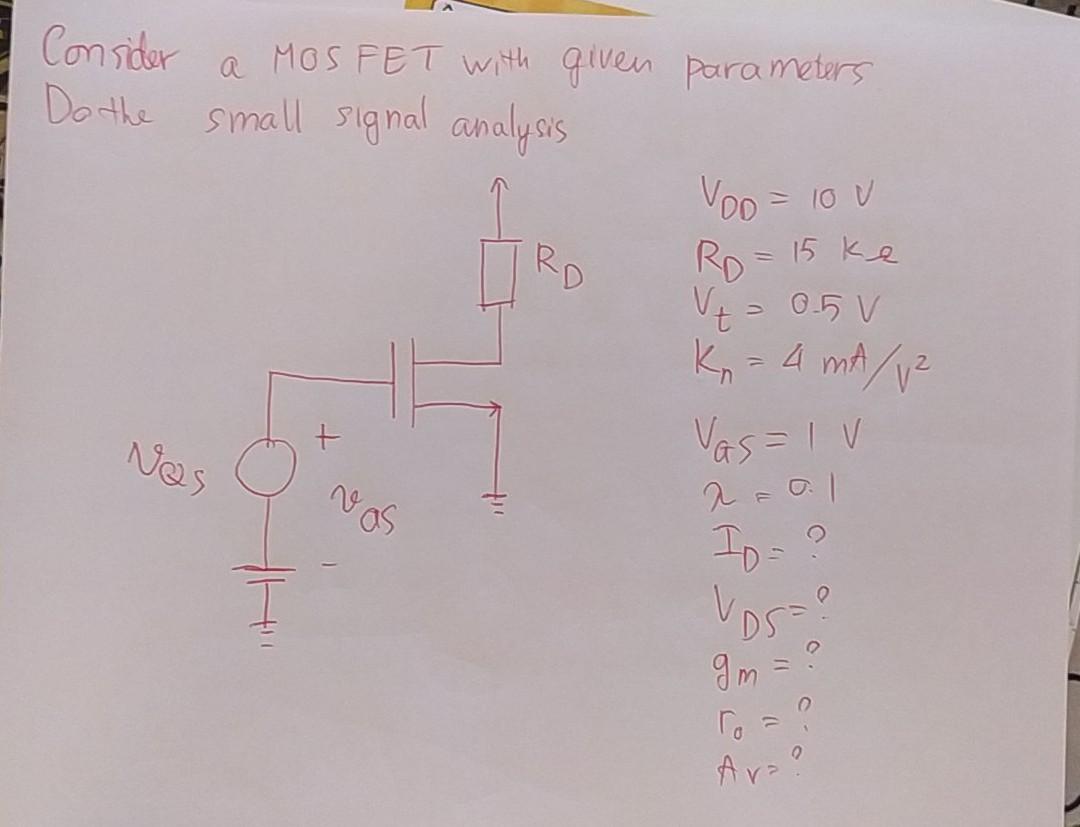 Consider a MOSFET with given parameters
Do the small signal analysis
V_DD = 10 V
R_D
R_D = 15 kΩ
V_t = 0.5 V
K_n = 4 mA/V²
+
V_GS = 1 V
v_GS
v_GS
λ = 0.1
-
I_D = ?
V_DS = ?
g_m = ?
r_o = ?
A_v = ?